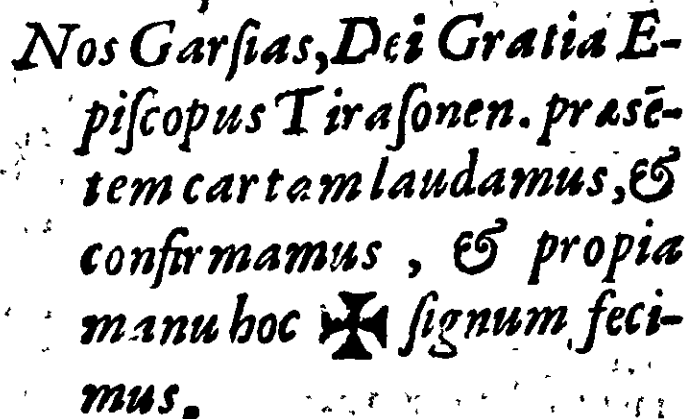 Nos Garſias, Dei Gratia E-
piſcopus Tiraſonen. præsē-
tem cartam laudamus, &
confirmamus, & propia
manu hoc ✠ ſignum feci-
mus.